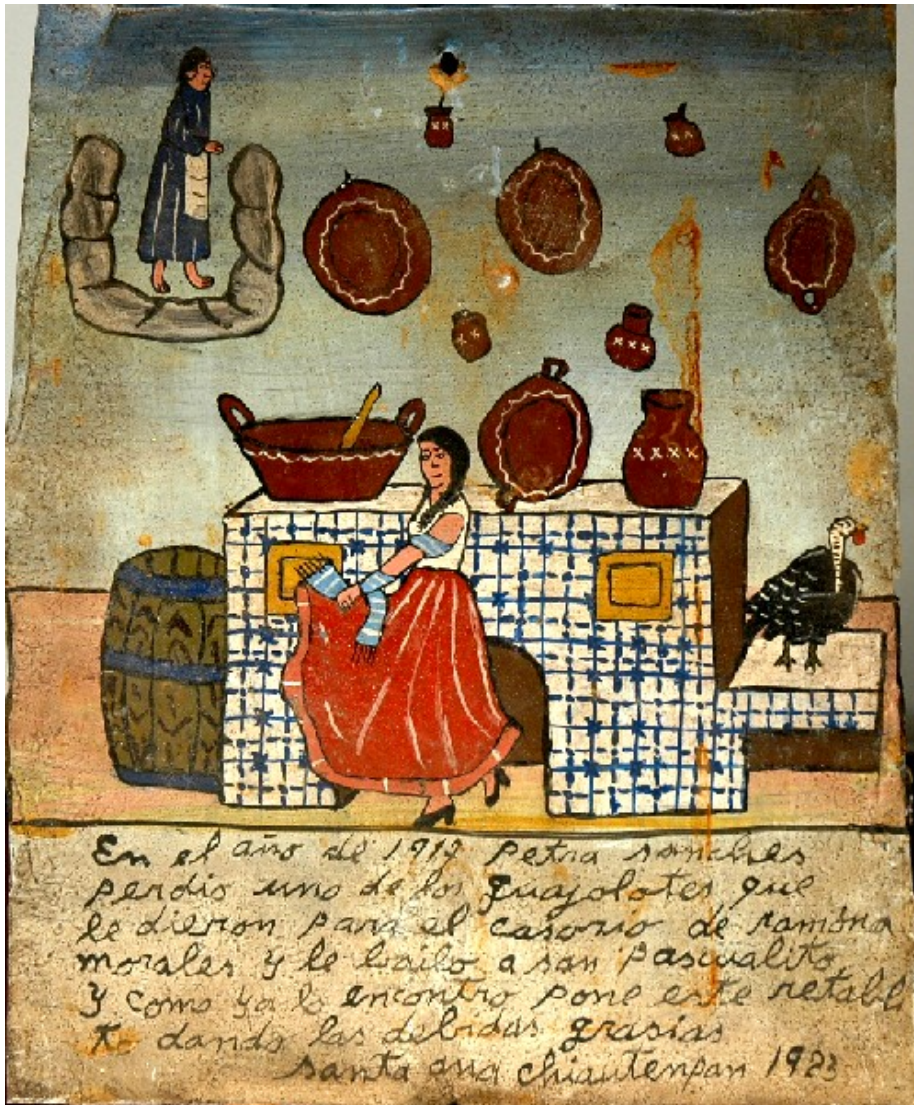 En el año de 1917 petra sanches
perdio uno de los guajolotes que
le dieron para el casorio de ramona
morales y le bailo a san pascualito
y como ya lo encontro pone este retabli
to dando las debidas grasias
santa ana chiautenpan 1923